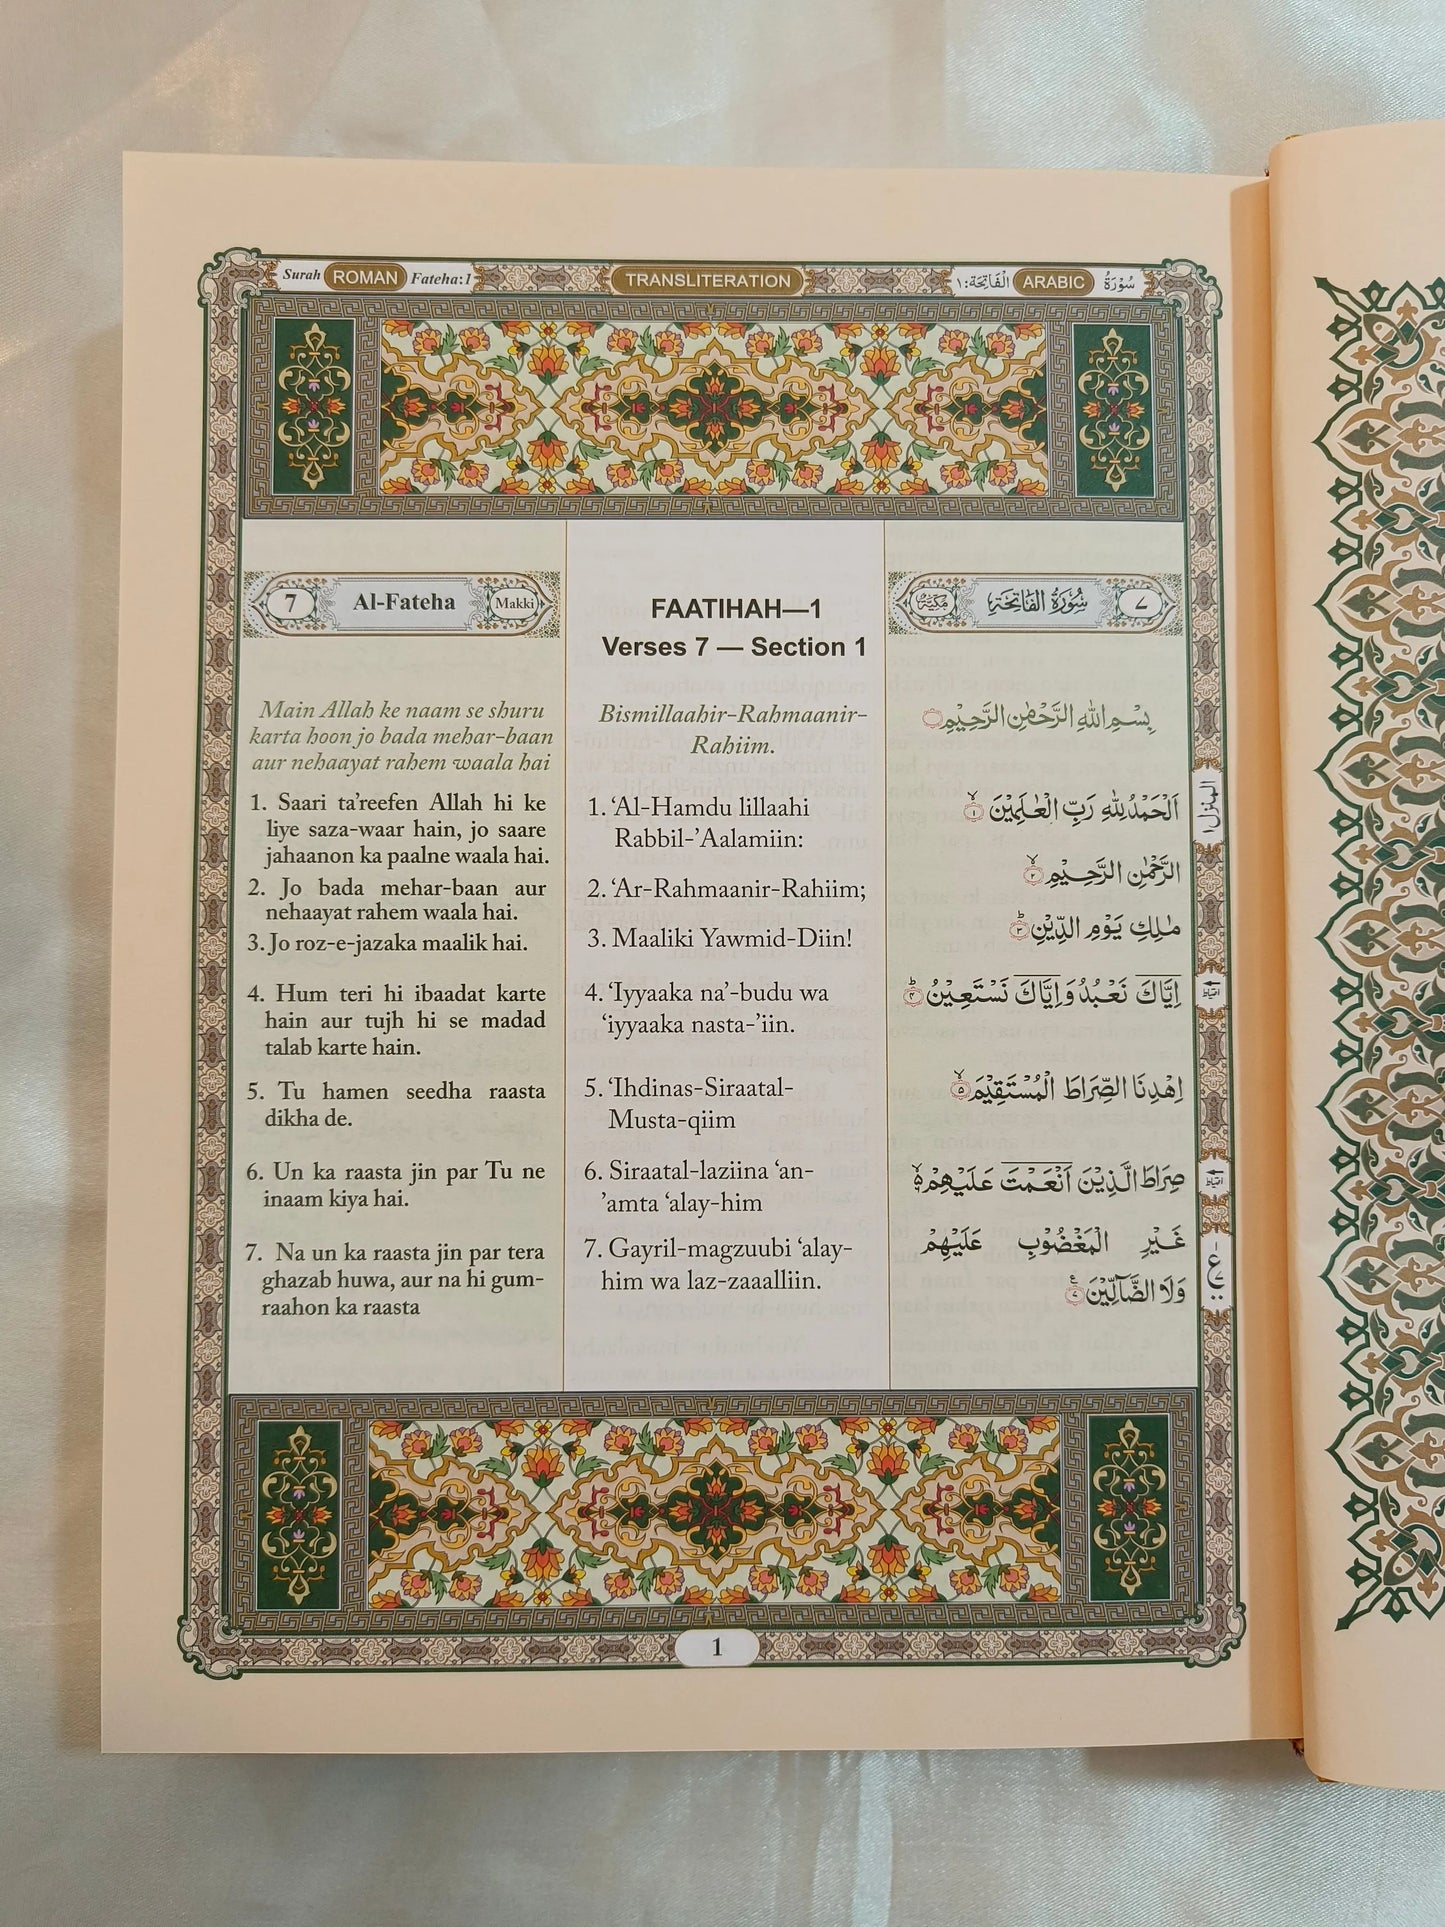 Surah ROMAN Fateha:1
TRANSLITERATION
الْفَاتِحَة:١ ARABIC سُوْرَةُ
7 Al-Fateha Makki
Main Allah ke naam se shuru
karta hoon jo bada mehar-baan
aur nehaayat rahem waala hai
1. Saari ta'reefen Allah hi ke
liye saza-waar hain, jo saare
jahaanon ka paalne waala hai.
2. Jo bada mehar-baan aur
nehaayat rahem waala hai.
3. Jo roz-e-jazaka maalik hai.
4. Hum teri hi ibaadat karte
hain aur tujh hi se madad
talab karte hain.
5. Tu hamen seedha raasta
dikha de.
6. Un ka raasta jin par Tu ne
inaam kiya hai.
7. Na un ka raasta jin par tera
ghazab huwa, aur na hi gum-
raahon ka raasta
FAATIHAH—1
Verses 7 — Section 1
Bismillaahir-Rahmaanir-
Rahiim.
1. ‘Al-Hamdu lillaahi
Rabbil-’Aalamiin:
2. ‘Ar-Rahmaanir-Rahiim;
3. Maaliki Yawmid-Diin!
4. ‘Iyyaaka na’-budu wa
‘iyyaaka nasta-’iin.
5. ‘Ihdinas-Siraatal-
Musta-qiim
6. Siraatal-laziina ‘an-
’amta ‘alay-him
7. Gayril-magzuubi ‘alay-
him wa laz-zaaalliin.
٧ سُوْرَةُ الْفَاتِحَة مَكِّيَّة
بِسْمِ اللهِ الرَّحْمٰنِ الرَّحِيْمِ
اَلْحَمْدُ لِلّٰهِ رَبِّ الْعٰلَمِيْنَ ۙ﴿١﴾
الرَّحْمٰنِ الرَّحِيْمِ ۙ﴿٢﴾
مٰلِكِ يَوْمِ الدِّيْنِ ؕ﴿٣﴾
اِيَّاكَ نَعْبُدُ وَ اِيَّاكَ نَسْتَعِيْنُ ؕ﴿٤﴾
اِهْدِنَا الصِّرَاطَ الْمُسْتَقِيْمَ ۙ﴿٥﴾
صِرَاطَ الَّذِيْنَ اَنْعَمْتَ عَلَيْهِمْ ۙ
غَيْرِ الْمَغْضُوْبِ عَلَيْهِمْ
وَلَا الضَّآلِّيْنَ ﴿٧﴾
المنزل ١
1